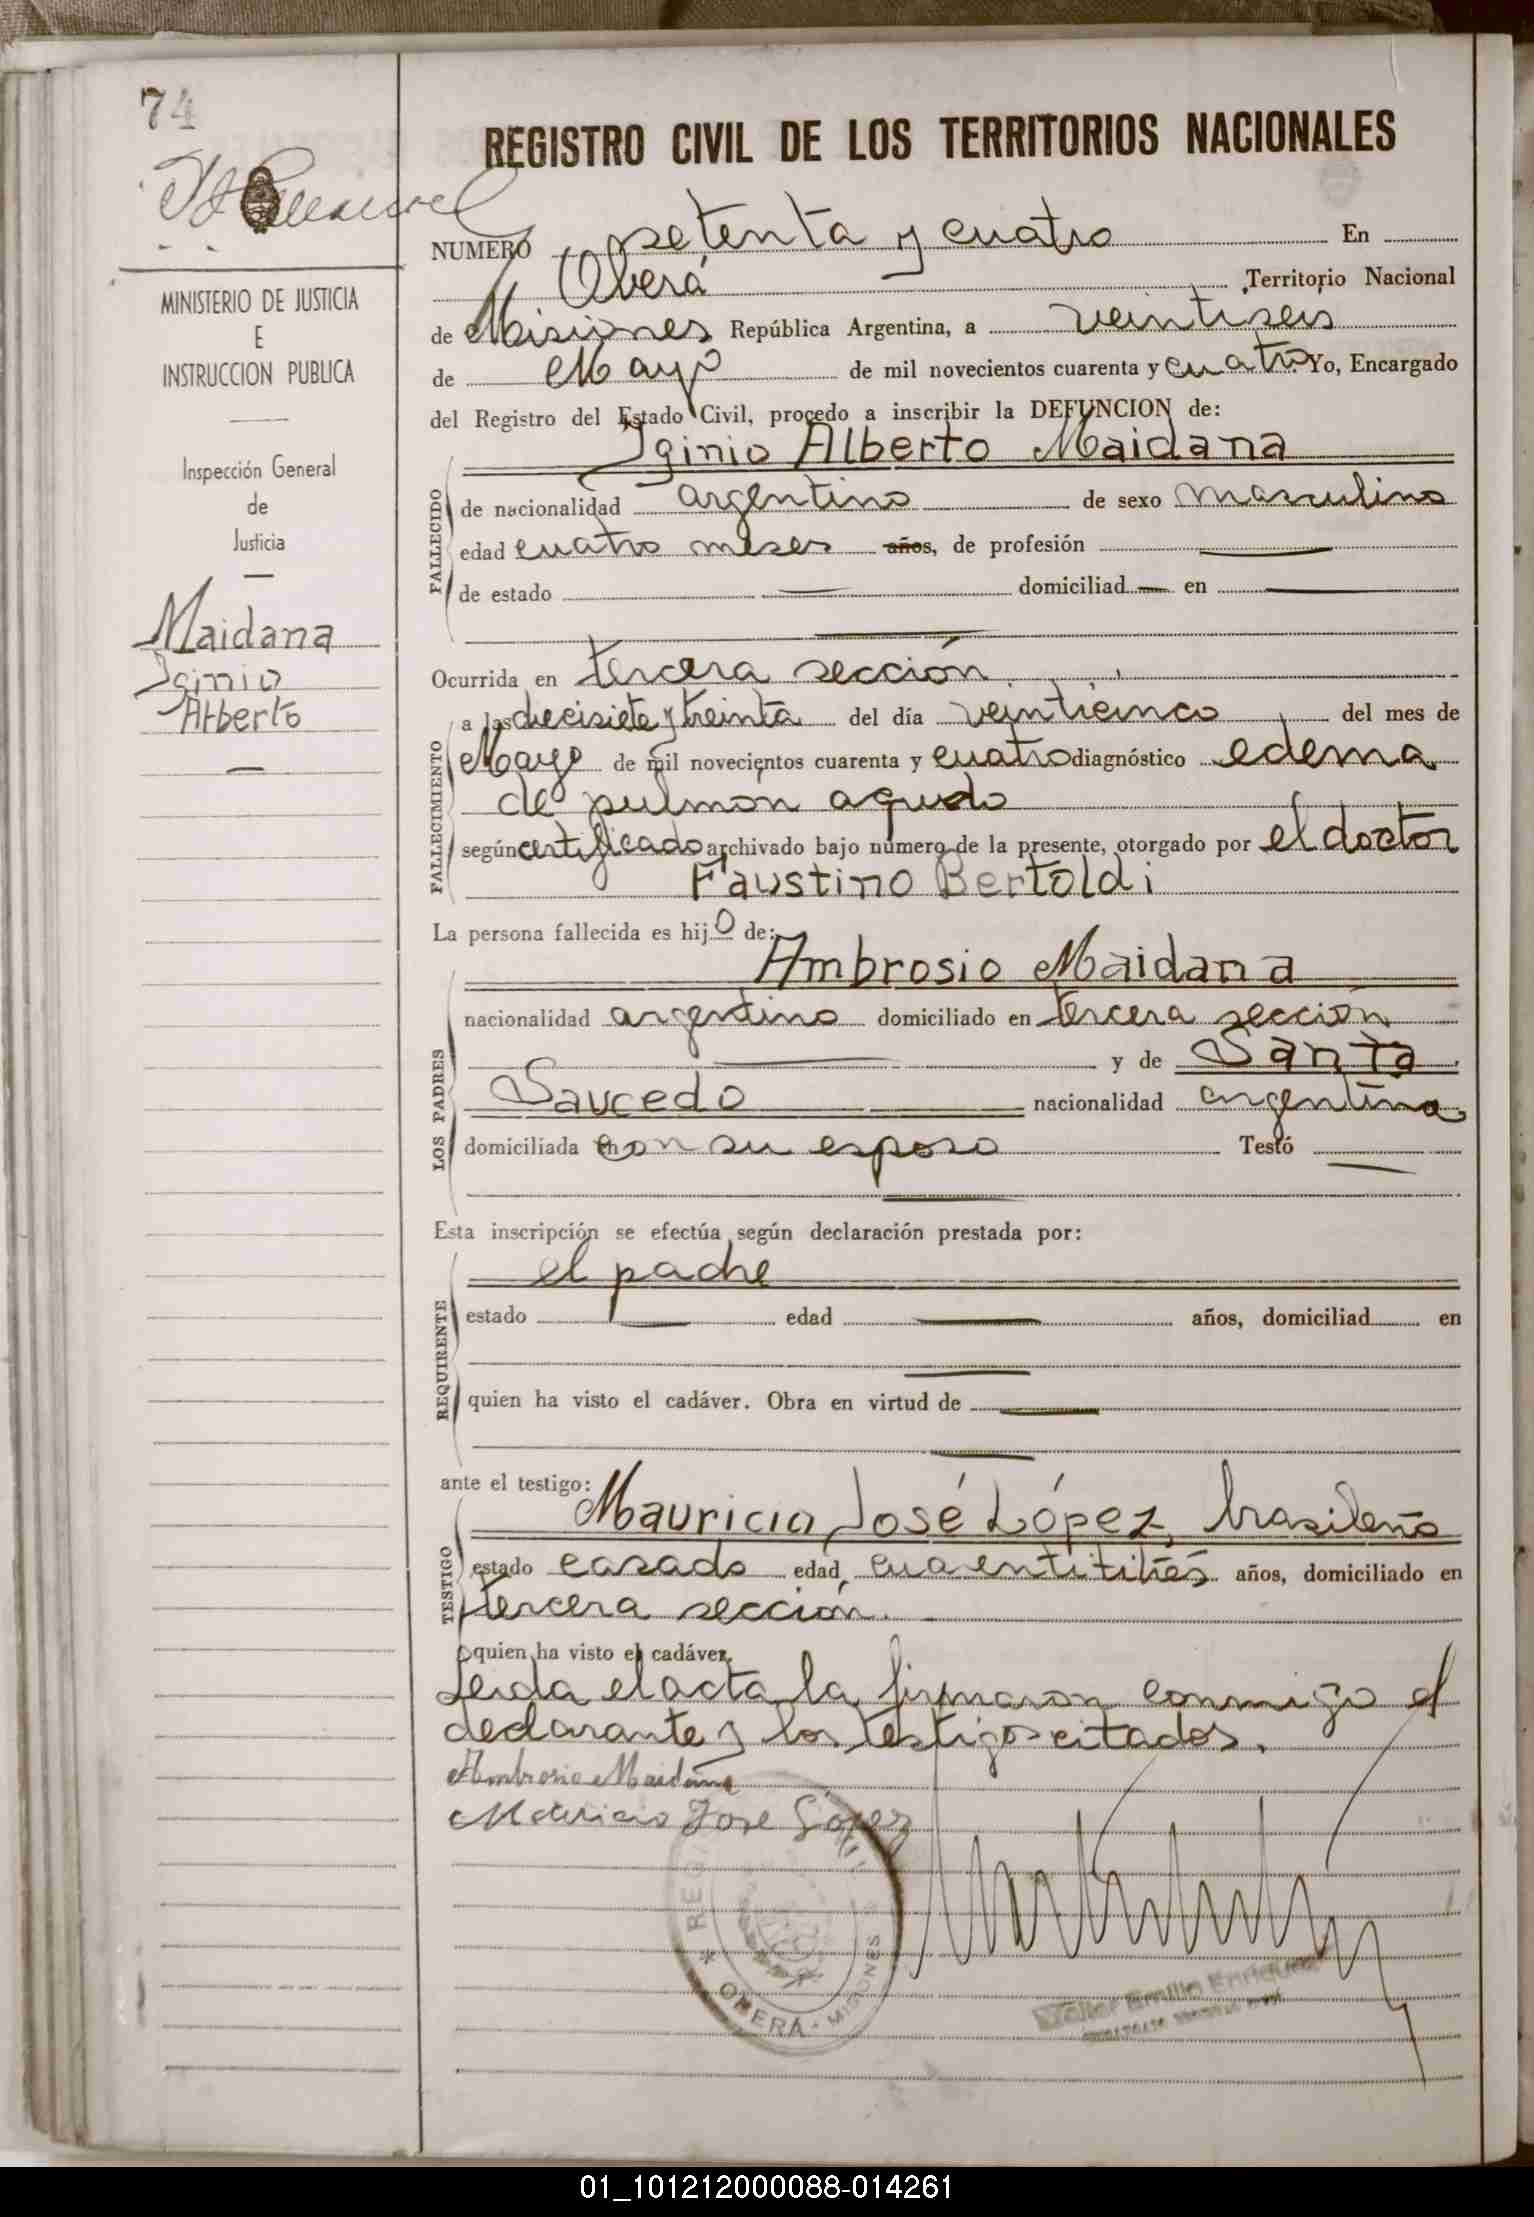 74
REGISTRO CIVIL DE LOS TERRITORIOS NACIONALES
NUMERO setenta y cuatro En
Oberá Territorio Nacional
de Misiones República Argentina, a veintiseis
de Mayo de mil novecientos cuarenta y cuatro Yo, Encargado
del Registro del Estado Civil, procedo a inscribir la DEFUNCION de:
Iginio Alberto Maidana
FALLECIDO
de nacionalidad argentino de sexo masculino
edad cuatro meses años, de profesión
de estado domiciliad en
MINISTERIO DE JUSTICIA
E
INSTRUCCION PUBLICA
Inspección General
de
Justicia
Maidana
Iginio
Alberto
Ocurrida en tercera sección
FALLECIMIENTO
a las diecisiete y treinta del día veinticinco del mes de
Mayo de mil novecientos cuarenta y cuatro diagnóstico edema
de pulmón agudo
según certificado archivado bajo número de la presente, otorgado por el doctor
Faustino Bertoldi
La persona fallecida es hijo de:
Ambrosio Maidana
LOS PADRES
nacionalidad argentino domiciliado en tercera sección
y de Santa
Saucedo nacionalidad argentina
domiciliada con su esposo Testó
Esta inscripción se efectúa según declaración prestada por:
el padre
REQUIRENTE
estado edad años, domiciliad en
quien ha visto el cadáver. Obra en virtud de
ante el testigo:
Mauricio José López, brasileño
TESTIGO
estado casado edad cuarentitrés años, domiciliado en
tercera sección.
quien ha visto el cadáver.
Leida el acta la firmaron conmigo el
declarante y los testigos citados.
Ambrosio Maidana
Mauricio Jose López
OBERÁ - MISIONES
01_101212000088-014261